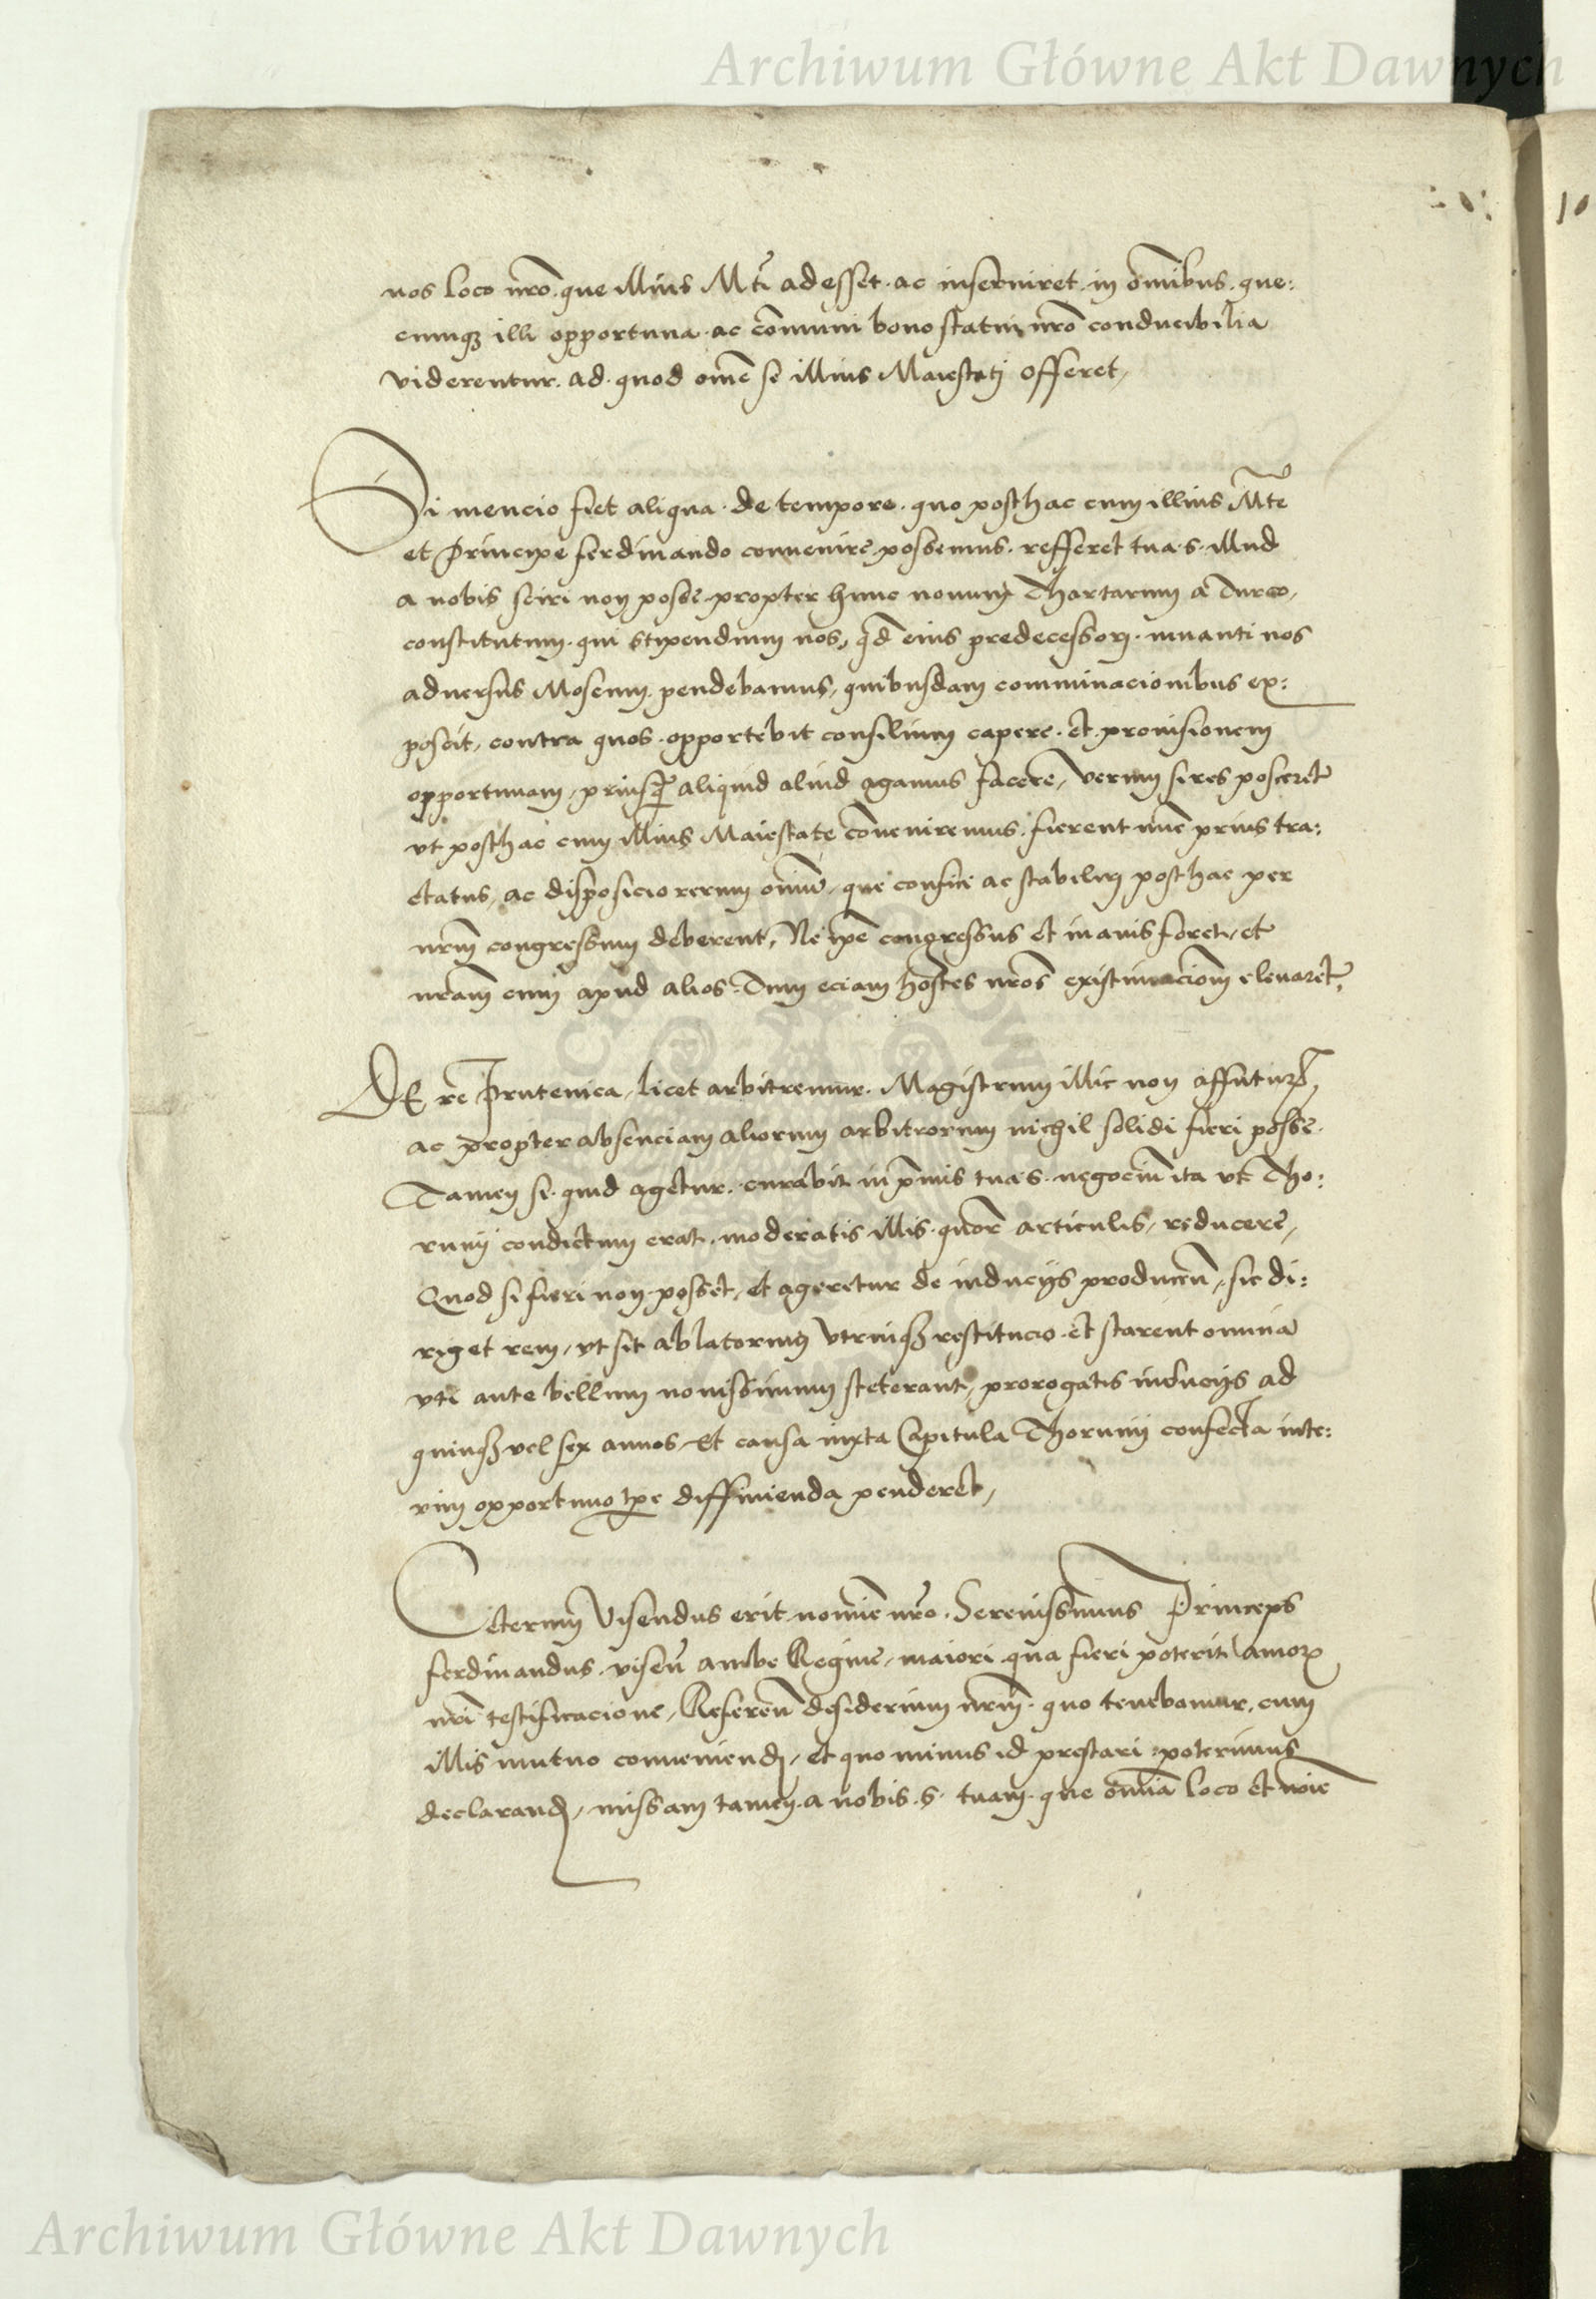 Archiwum Główne Akt Dawnych
10
nos loco nr̃o. que illius Mti adesset. ac inserviret. in om̃ibus. que:
cumq3 illi opportuna. ac com̃uni bono statui nr̃o conducibilia
viderentur. ad. quod om̃e se illius Maiestati offeret,
Si mencio fiet aliqua. de tempore. quo posthac cum illius Mte
et Principe ferdinando convenire possemus. refferet tua. s. illud
a nobis sciri non posse. propter hunc novum Thartarum a Turco,
constitutum. qui stipendium nos, qd̃ eius predecessori. iuvanti nos
adversus Moscum. pendebamus, quibusdam comminacionibus ex:
poscit, contra quos. opportebit consilium capere. et provisionem
opportunam, priusq̃ aliquid aliud agamus facere, verum si res posceret
vt posthac cum illius Maiestate cõveniremus. fierent nũc prius tra:
ctatus, ac disposicio rerum om̃iũ, que confici ac stabiliri posthac per
nr̃m congressum deberent, Ne ip̃e congressus et inanis foret, et
nr̃am cum apud alios. Tum eciam hostes nr̃os existimaciõm elevaret,
DE re Prutenica, licet arbitremur. Magistrum illic non affuturũ,
ac propter absenciam aliorum arbitrorum nichil solidi fieri posse.
Tamen si. quid agetur. curabit in p̃mis tua. s. negociũ ita vt Tho:
runij condictum erat. moderatis illis. quor̃ articulis, reducere,
Quod si fieri non posset, et ageretur de inducijs producen̄, sic di:
riget rem, vt sit ablatorum vtriusq3 restitucio. et starent omnia
vti ante bellum novissimum steterant, prorogatis inducijs ad
quinq3 vel sex annos, Et causa iuxta Capitula Thorunij confecta inte:
rim opportuno tp̃e diffinienda penderet,
Ceterum Visendus erit nomĩe nr̃o. Serenissimus Princeps
ferdinandus. visen̄ ambe Regine, maiori. qua fieri poterit amoris
nr̃i testificacione, Referen̄ desiderium nr̃m. quo tenebamur. cum
illis mutuo conveniendj, et quo minus id prestari. poterimus
declarandj, missam tamen. a nobis. s. tuam. que om̃ia loco et noĩe
Archiwum Główne Akt Dawnych